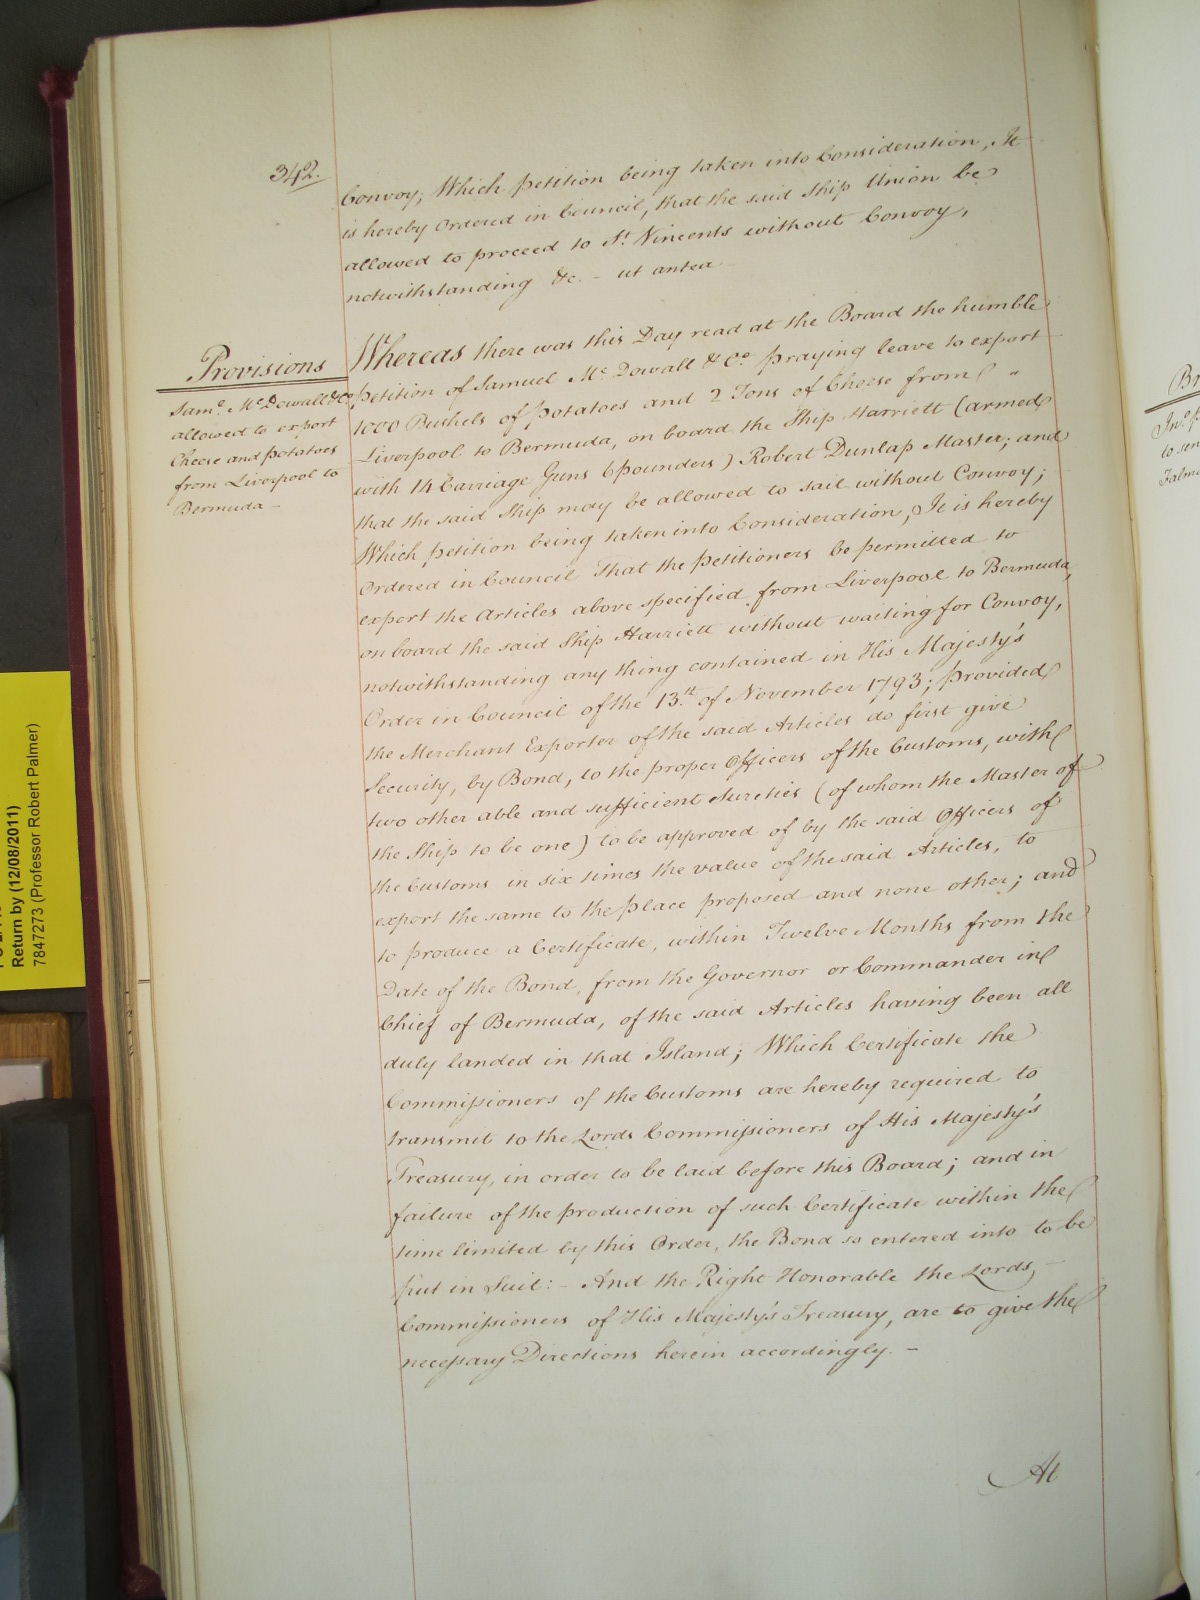 342.
Convoy; Which petition being taken into Consideration, It
is hereby Ordered in Council, that the said Ship Union be
allowed to proceed to St Vincents without Convoy,
notwithstanding &c. - ut antea -
Provisions
Samo. Mc. Dowall & Co.
allowed to export
Cheese and Potatoes
from Liverpool to
Bermuda -
Whereas there was this Day read at the Board the humble
petition of Samuel Mc. Dowall & Co. praying leave to export
1000 Bushels of potatoes and 2 Tons of Cheese from "
Liverpool to Bermuda, on board the Ship Harriett (armed
with 14 Carriage Guns 6 pounders) Robert Dunlap Master; and
that the said Ship may be allowed to sail without Convoy;
Which petition being taken into Consideration, It is hereby
Ordered in Council That the petitioners be permitted to
export the Articles above specified from Liverpool to Bermuda,
on board the said Ship Harriett without waiting for Convoy,
notwithstanding any thing contained in His Majesty's
Order in Council of the 13th of November 1793; provided
the Merchant Exporter of the said Articles do first give
Security, by Bond, to the proper Officers of the Customs, with
two other able and sufficient Sureties (of whom the Master of
the Ship to be one) to be approved of by the said Officers of
the Customs in six times the value of the said Articles, to
export the same to the place proposed and none other; and
to produce a Certificate, within Twelve Months from the
Date of the Bond, from the Governor or Commander in
Chief of Bermuda, of the said Articles having been all
duly landed in that Island; Which Certificate the
Commissioners of the Customs are hereby required to
transmit to the Lords Commissioners of His Majesty's
Treasury, in order to be laid before this Board; and in
failure of the production of such Certificate within the
time limited by this Order, the Bond so entered into to be
put in Suit: - And the Right Honorable the Lords, -
Commissioners of His Majesty's Treasury, are to give the
necessary Directions herein accordingly. -
At
Return by (12/08/2011)
7847273 (Professor Robert Palmer)
Br
to sen
Falmo